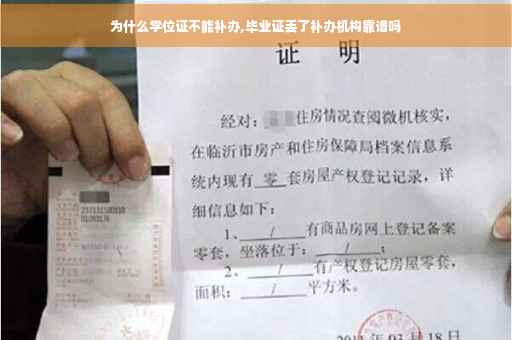 为什么学位证不能补办,毕业证丢了补办机构靠谱吗
证 明
经对：住房情况查阅微机核实，
在临沂市房产和住房保障局档案信息系
统内现有 零 套房屋产权登记记录，详
细信息如下：
1、 / 有商品房网上登记备案
零套，坐落位于： / ；
2、 / 有产权登记房屋零套，
面积： / 平方米。
03月18日